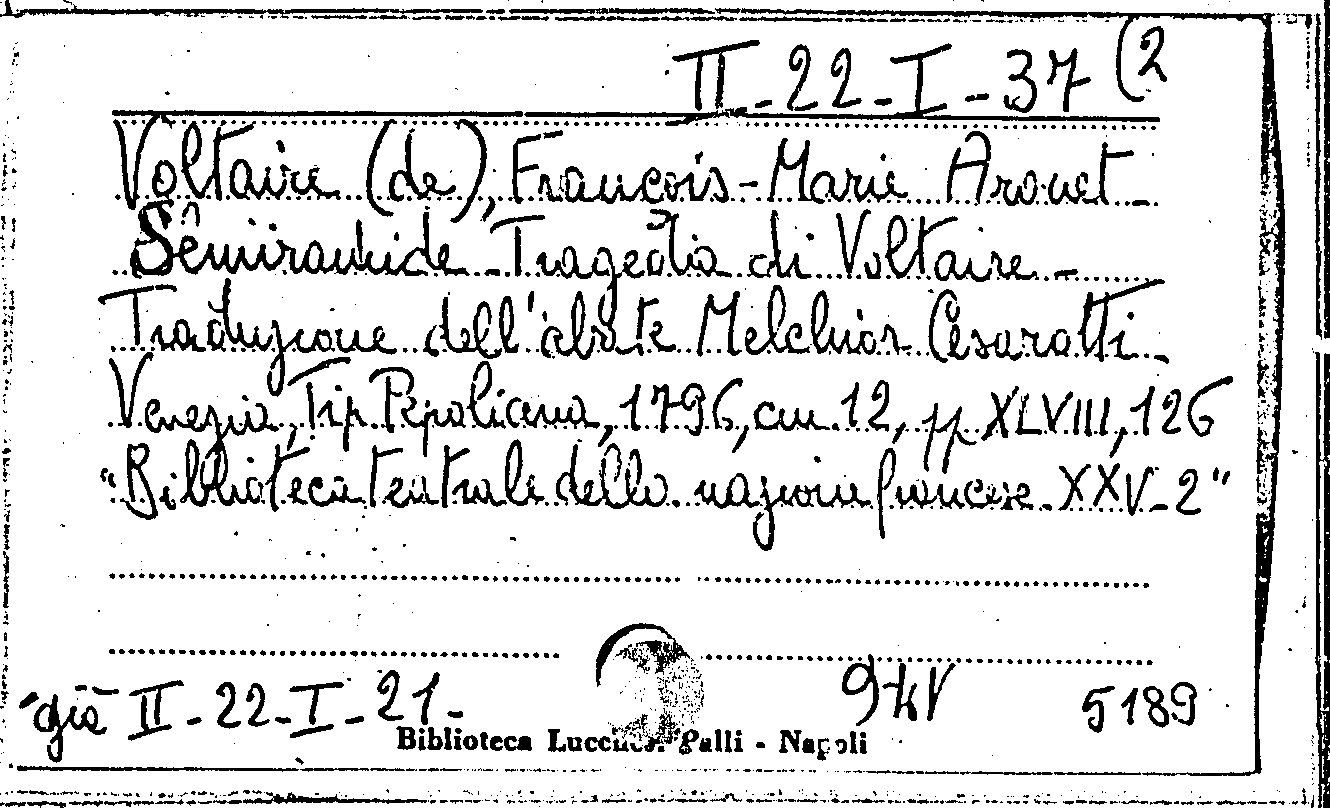 II-22-I-37 (2
Voltaire (de), François-Marie Arouet -
Sémiramide - Tragedia di Voltaire -
Traduzione dell'abate Melchior Cesarotti -
Venezia, Tip. Pepoliana, 1796, cm. 12, pp. XLVIII, 126
"Biblioteca teatrale della nazione francese XXV-2"
già II-22-I-21-
5189
Biblioteca Lucchesi Palli - Napoli